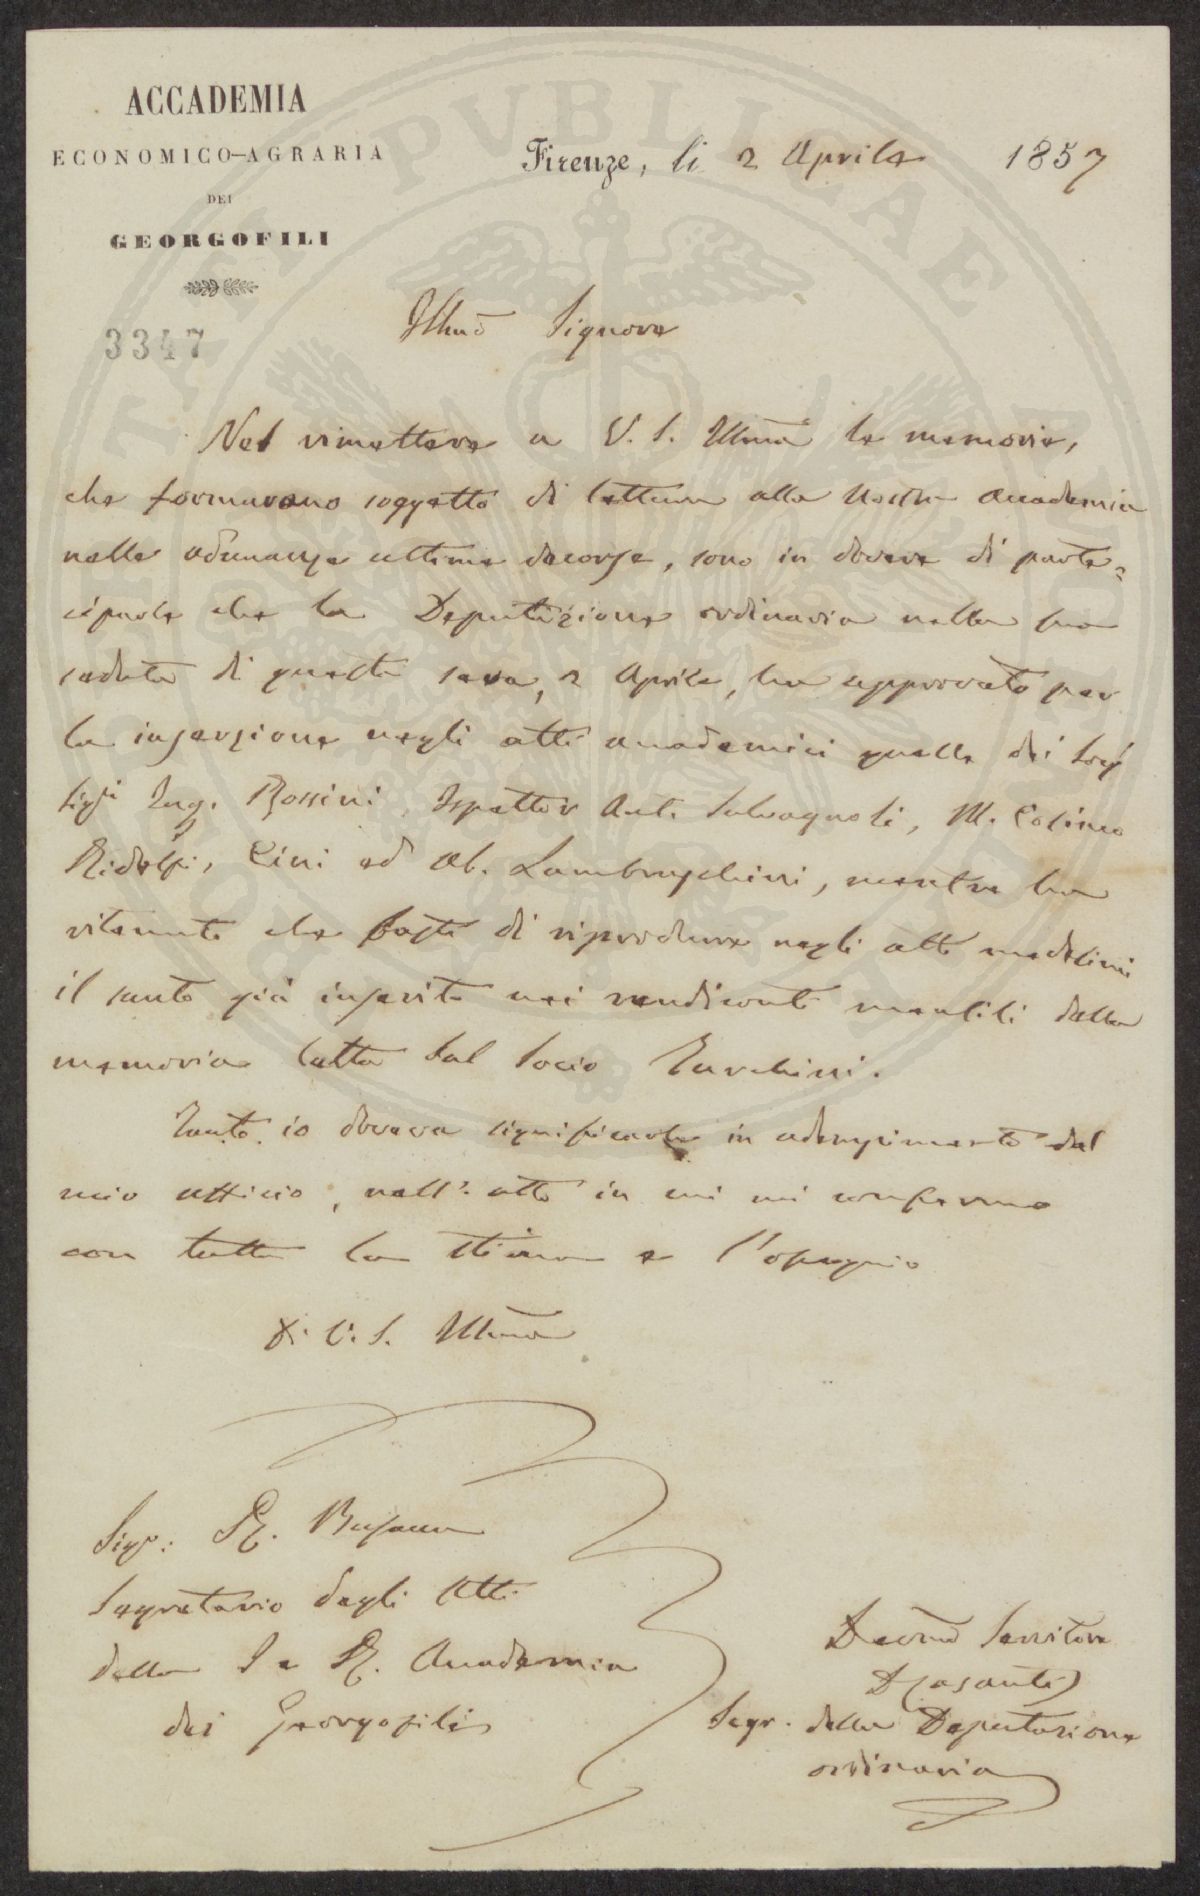 ACCADEMIA
ECONOMICO-AGRARIA
DEI
GEORGOFILI
3347
Firenze, li 2 Aprile 1857
Illmo Signore
Nel rimettere a V. S. Illma le memorie,
che formarono soggetto di lettura alla Nostra Accademia
nelle adunanze ultime decorse, sono in dovere di parte=
ciparle che la Deputazione ordinaria nella sua
seduta di questa sera, 2 Aprile, ha approvato per
la inserzione negli atti accademici quelle dei Socj
Sigri Ing. Rossini, Ispettor Ant. Salvagnoli, M. Cosimo
Ridolfi, Cini ed Ab. Lambruschini, mentre ha
ritenuto che basti di riprodurre negli atti medesimi
il sunto già inserito nei rendiconti mensili della
memoria letta dal Socio Turchini.
Tanto io doveva significarle in adempimento del
mio ufficio, nell'atto in cui mi confermo
con tutta la stima e l'ossequio
Di V. S. Illma
Sigr:
Segretario degli Atti
della I e R. Accademia
dei Georgofili
Devmo Servitore
Segr. della Deputazione
ordinaria